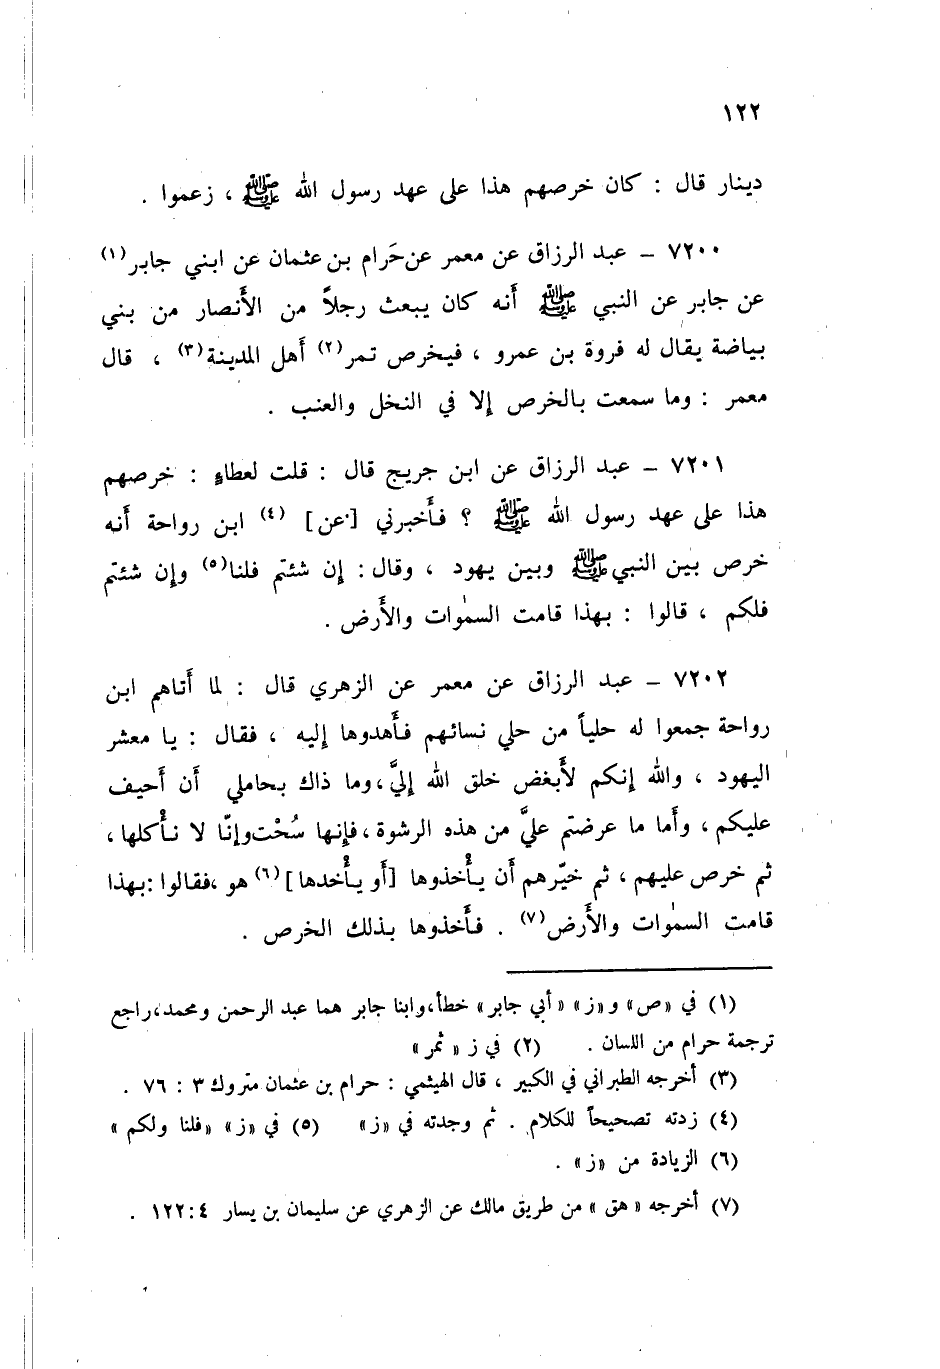 ١٢٢
دينار قال : كان خرصهم هذا على عهد رسول الله ﷺ ، زعموا .
٧٢٠٠ – عبد الرزاق عن معمر عن حَرام بن عثمان عن ابني جابر(١)
عن جابر عن النبي ﷺ أنه كان يبعث رجلاً من الأنصار من بني
بياضة يقال له فروة بن عمرو ، فيخرص تمر(٢) أهل المدينة(٣) ، قال
معمر : وما سمعت بالخرص إلا في النخل والعنب .
٧٢٠١ – عبد الرزاق عن ابن جريج قال : قلت لعطاء : خرصهم
هذا على عهد رسول الله ﷺ ؟ فأخبرني [عن] (٤) ابن رواحة أنه
خرص بين النبي ﷺ وبين يهود ، وقال : إن شئتم فلنا(٥) وإن شئتم
فلكم ، قالوا : بهذا قامت السمٰوات والأرض .
٧٢٠٢ – عبد الرزاق عن معمر عن الزهري قال : لما أتاهم ابن
رواحة جمعوا له حلياً من حلي نسائهم فأهدوها إليه ، فقال : يا معشر
اليهود ، والله إنكم لأبغض خلق الله إليَّ ، وما ذاك بحاملي أن أحيف
عليكم ، وأما ما عرضتم عليَّ من هذه الرشوة ، فإنها سُحْت وإنّا لا نأكلها ،
ثم خرص عليهم ، ثم خيّرهم أن يأخذوها [أو يأخدها] (٦) هو ، فقالوا : بهذا
قامت السمٰوات والأرض(٧) . فأخذوها بذلك الخرص .
(١) في «ص» و«ز» «أبي جابر» خطأ، وابنا جابر هما عبد الرحمن ومحمد، راجع
ترجمة حرام من اللسان . (٢) في ز « ثمر »
(٣) أخرجه الطبراني في الكبير ، قال الهيثمي : حرام بن عثمان متروك ٣ : ٧٦ .
(٤) زدته تصحيحاً للكلام . ثم وجدته في «ز» (٥) في «ز» «فلنا ولكم »
(٦) الزيادة من «ز» .
(٧) أخرجه « هق » من طريق مالك عن الزهري عن سليمان بن يسار ٤ : ١٢٢ .